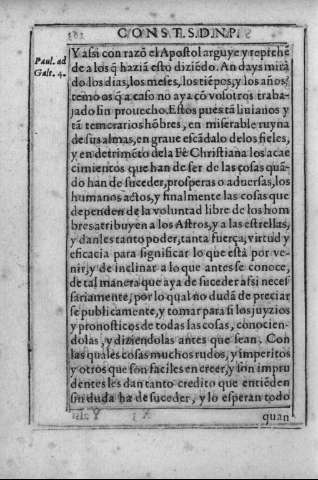 CONST. S. D. N. P.
Paul. ad
Galt. 4.
Y assi con razõ el Apostol arguye y reprehẽ
de a los q̃ haziã esto diziẽdo. An days mirã
do los dias, los meses, los tiẽpos, y los años?
temo os q̃ a caso no aya cõ volotros traba-
jado sin prouecho. Estos pues tã liuianos y
tã temerarios hõbres, en miserable ruyna
de sus almas, en graue escãdalo de los fieles,
y en detrimẽto de la Fè Christiana los acae
cimientos que han de ser de las cosas quã-
do han de suceder, prosperas o aduersas, los
humanos actos, y finalmente las cosas que
dependen de la voluntad libre de los hom
bres atribuyen a los Astros, y a las estrellas,
y danles tanto poder, tanta fuerça, virtud y
eficacia para significar lo que está por ve-
nir, y de inclinar a lo que antes se conoce,
de tal manera que aya de suceder assi neces
sariamente, por lo qual no dudã de preciar
se publicamente, y tomar para si los juyzios
y pronosticos de todas las cosas, conocien-
dolas, y diziendolas antes que sean. Con
las quales cosas muchos rudos, y imperitos
y otros que son faciles en creer, y son impru
dentes les dan tanto credito que entiẽden
sin duda ha de suceder, y lo esperan todo
quan